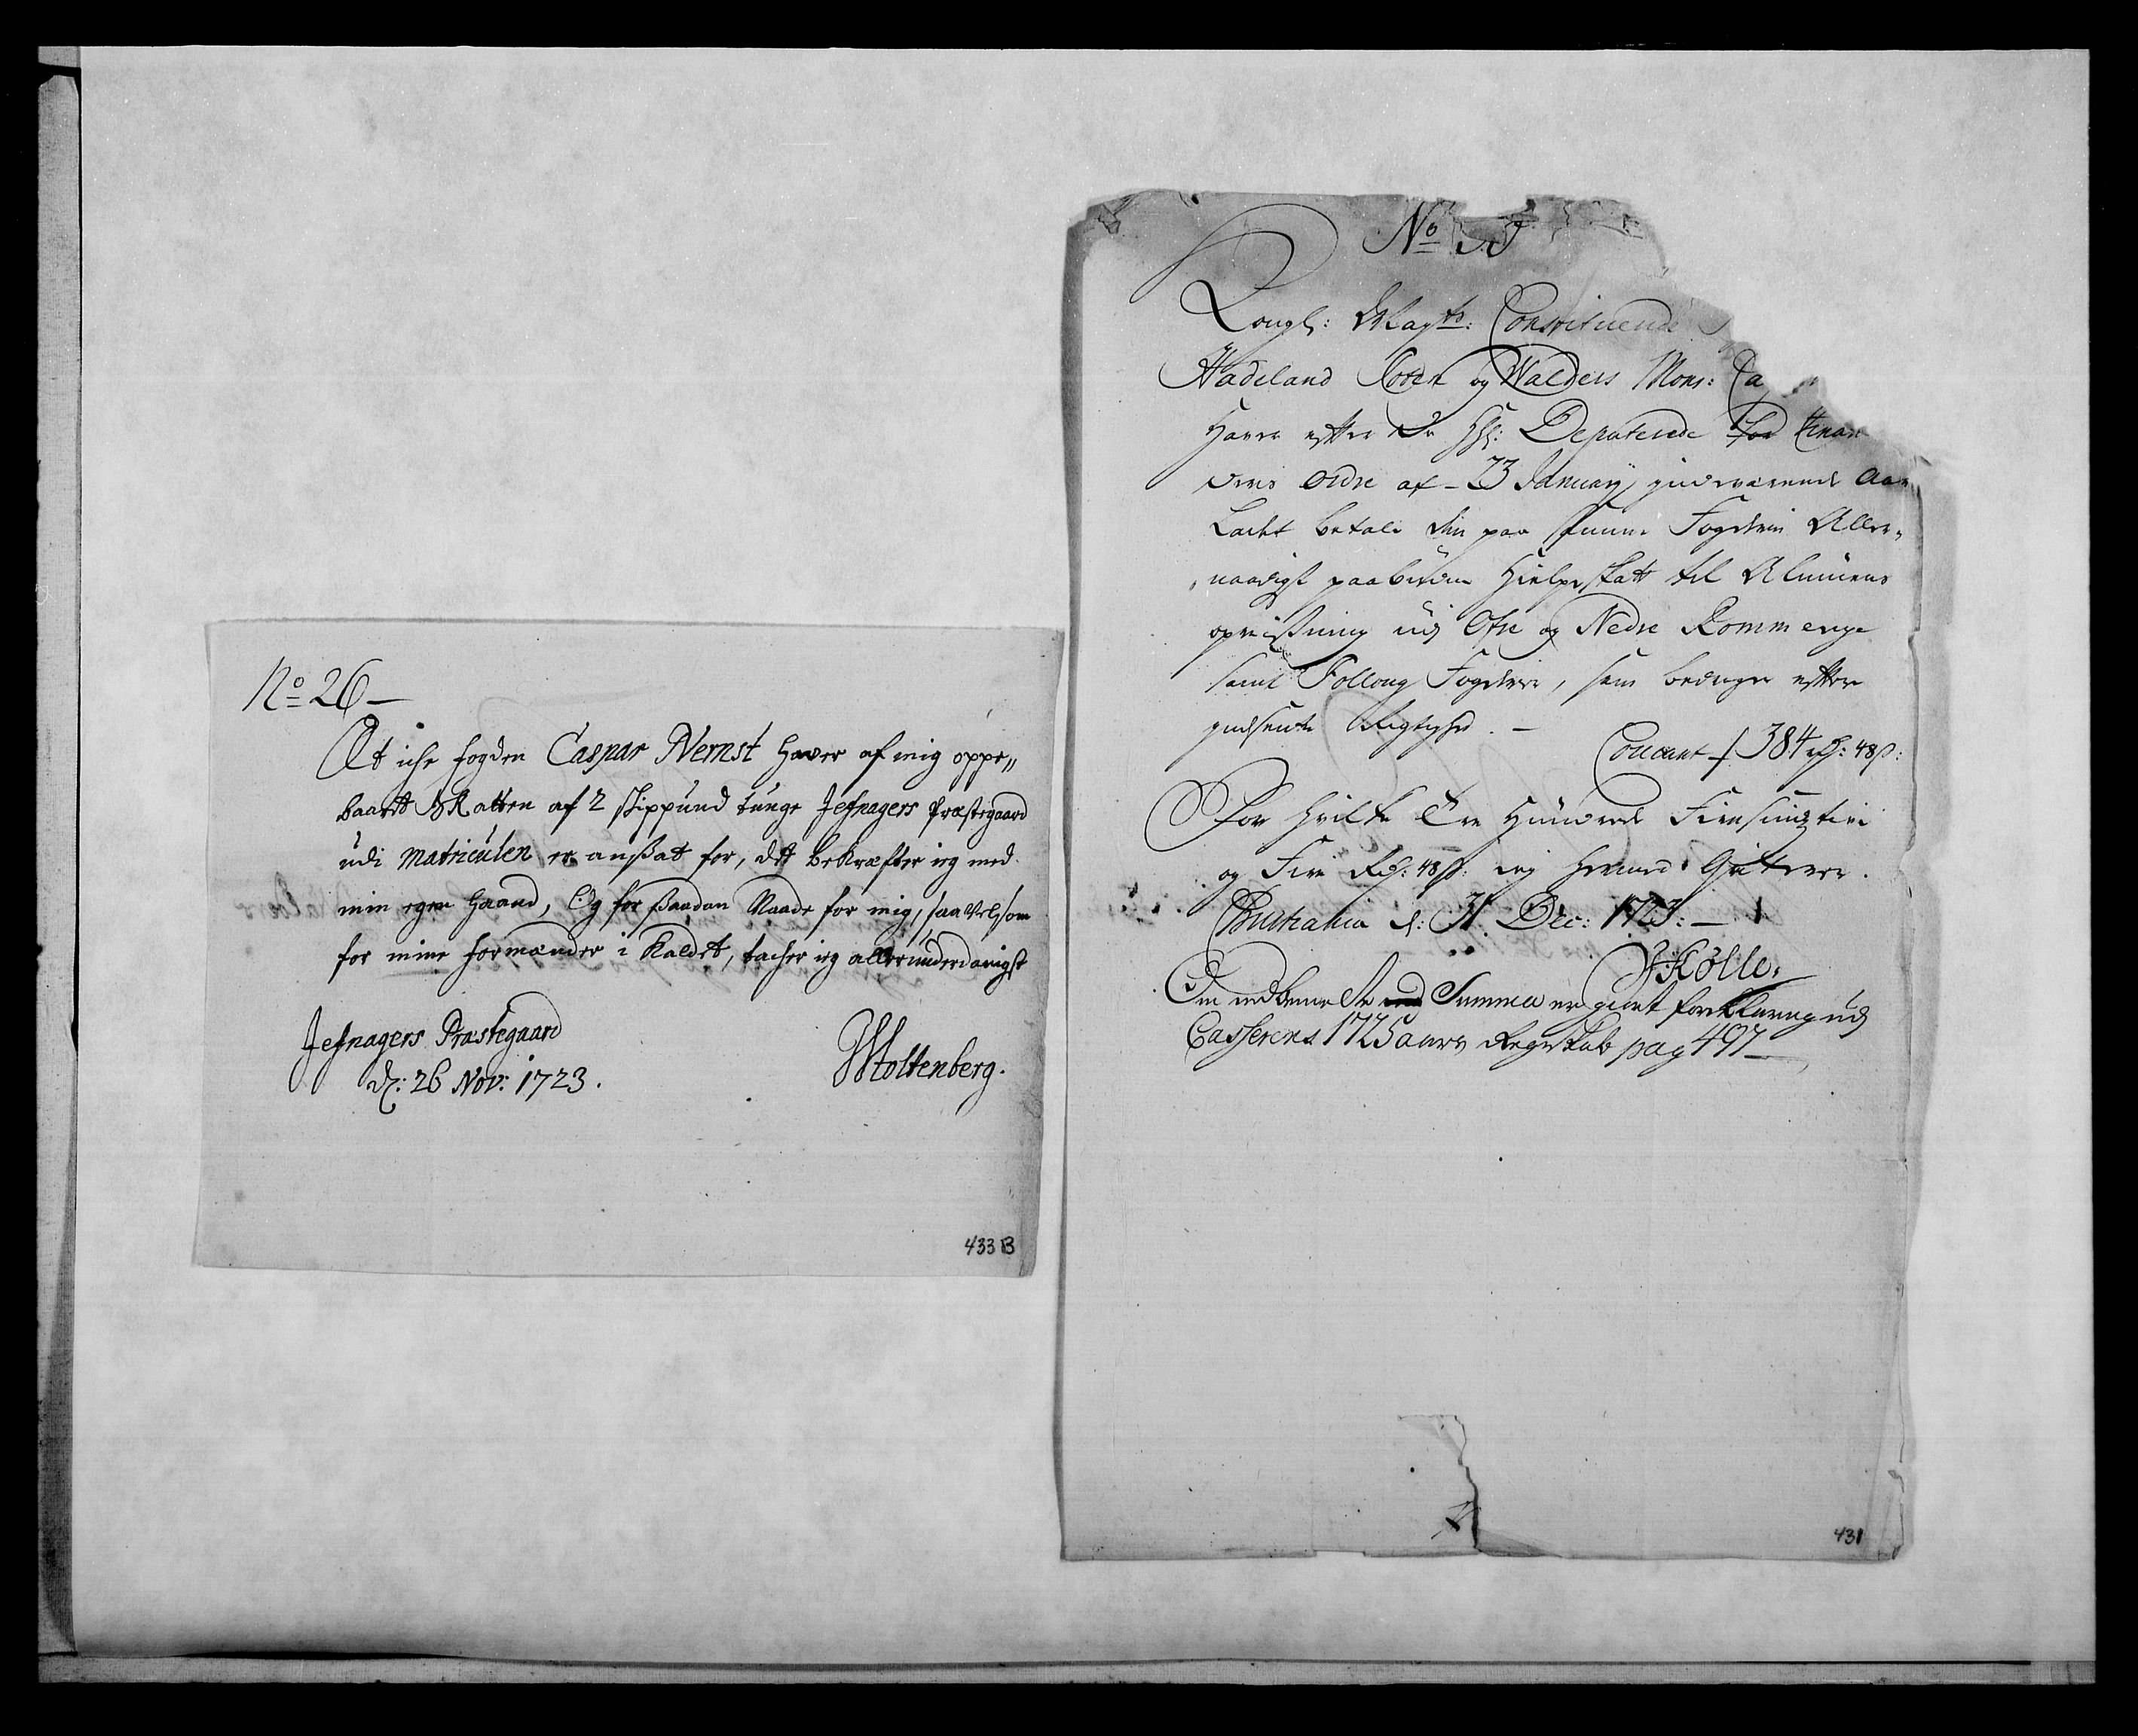 No 26
At iche fogden Caspar Nernst haver af mig oppe„
baaret skatten af 2 skippund tunge Jefnagers præstegaard
udi Matriculen er ansßat for, det bekræfter ieg med
min egen haand, Og for ßaadan Naade for mig, saa vel som
for mine formænder i kaldet, tacher ieg allerunderdanigst
Jefnagers Præstegaard
d: 26 Nov: 1723.
Stoltenberg.
433 B
No
Kongl: Mayts: Constituerede
Hadeland og Walders Mons: Ca
Haver efter de Deputerede for Finan
ordre af 23 January indeværende Aar
Ladet betale den paa Fogderie Aller„
naadigst paabudne Hielpe skatt til Almuens
opreißning udj Øfre og Nedre Rommerige
samt Follong Fogderie, som bedrager efter
indsendte Rigtighed.
Courant 384 rd: 48 s:
For hvilke Tre Hundrede Firesindztive
og Fire Rd: 48 s: ieg hermed Qvitterer.
Christiania d: 31 Dec: 1723:
Kølle:
Summa er giort forklaring udj
Casserens 1725 aars Regnskab pag 497
431